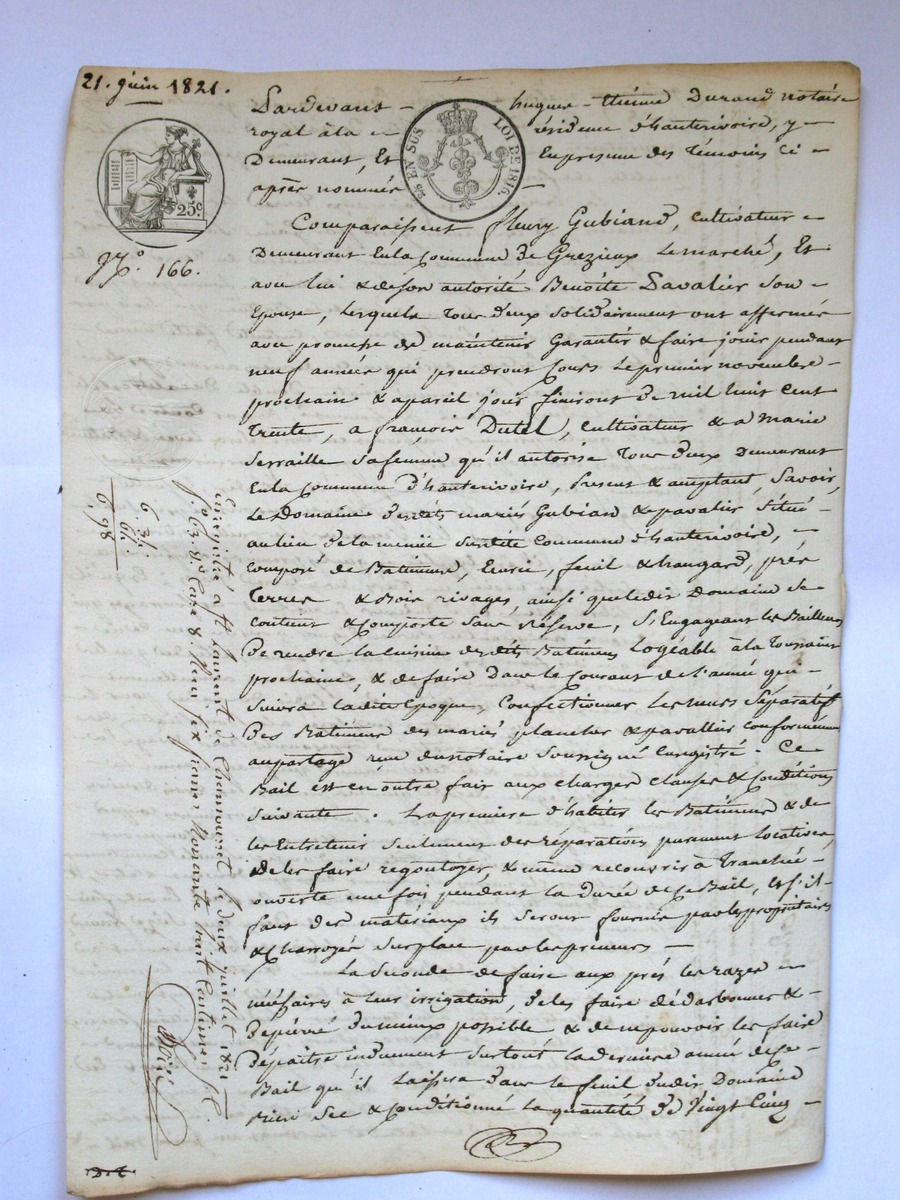 21. juin 1821.
Pardevant hugues-thiéme Durand notaire
royal à la résidence d'hauterivoire, y
Demeurant, Et En presence des témoins Ci
après nommés
25 EN SUS LOI DE 1816.
25c.
No. 166.
Comparaissent fleury Gubiand, cultivateur
Demeurant En la Commune de Grezieux Le marché, Et
avec lui & de son autorité Benoite Pavalier son
Epouse, Lesquels Tous deux solidairement ont affermé
avec promesse de maintenir Garantir & faire jouir pendant
neuf années qui prendront Cours Le premier novembre
prochain & a pareil jour finiront de mil huit cent
trente, a françois Dutel, cultivateur & a marie
Serraille sa femme qu'il autorise Tous deux Demeurant
En la Commune d'hauterivoire, Present & acceptant, Savoir,
Le Domaine desdits mariés Gubian & pavalier Situé
au lieu de la menée sus dite Commune d'hauterivoire,
Composé de Batimens, Ecurie, feuil & hangard, prés
Terres & Bois rivages, ainsi que ledit Domaine se
Contient & Comporte sans réserve, S'Engageant les Bailleurs
De rendre la Cuisine desdits Batimens logeable à la Toussaint
prochaine, & de faire Dans le Courant de l'année qui
Suivra ladite Epoque, Confectionner Les murs Séparatif
Des Batimens des mariés plancher & pavallier conformément
au partage reçu du notaire Soussigné Enregistré. Ce
Bail est en outre fait aux charges clauses & Conditions
Suivante. La premiere d'habiter les Batimens & de
les Entretenir Seulement des réparations purement locatives,
de les faire regoutoyer, & même recouvrir à Tranchée
ouverte une fois pendant la Durée de ce Bail, & s'il
faut des matériaux ils seront fournis par les propriétaires
& Charroyés sur place par les preneurs
La Seconde de faire aux prés les razes
nécéssaires à leur irrigation, de les faire dédarbonner &
Depierré Du mieux possible & de ne pouvoir les faire
Dépaitre induement surtout la derniere année de ce
Bail qu'il Laissera dans le feuil dudit Domaine
Sec & Conditionné La quantité de Vingt Cinq
Enregistré à St Laurent de Chamousset le deux juillet 1821
fo. 63. Vo. Case 8. Reçu six francs Nonante huit Centimes
6. 34.
64.
6, 98